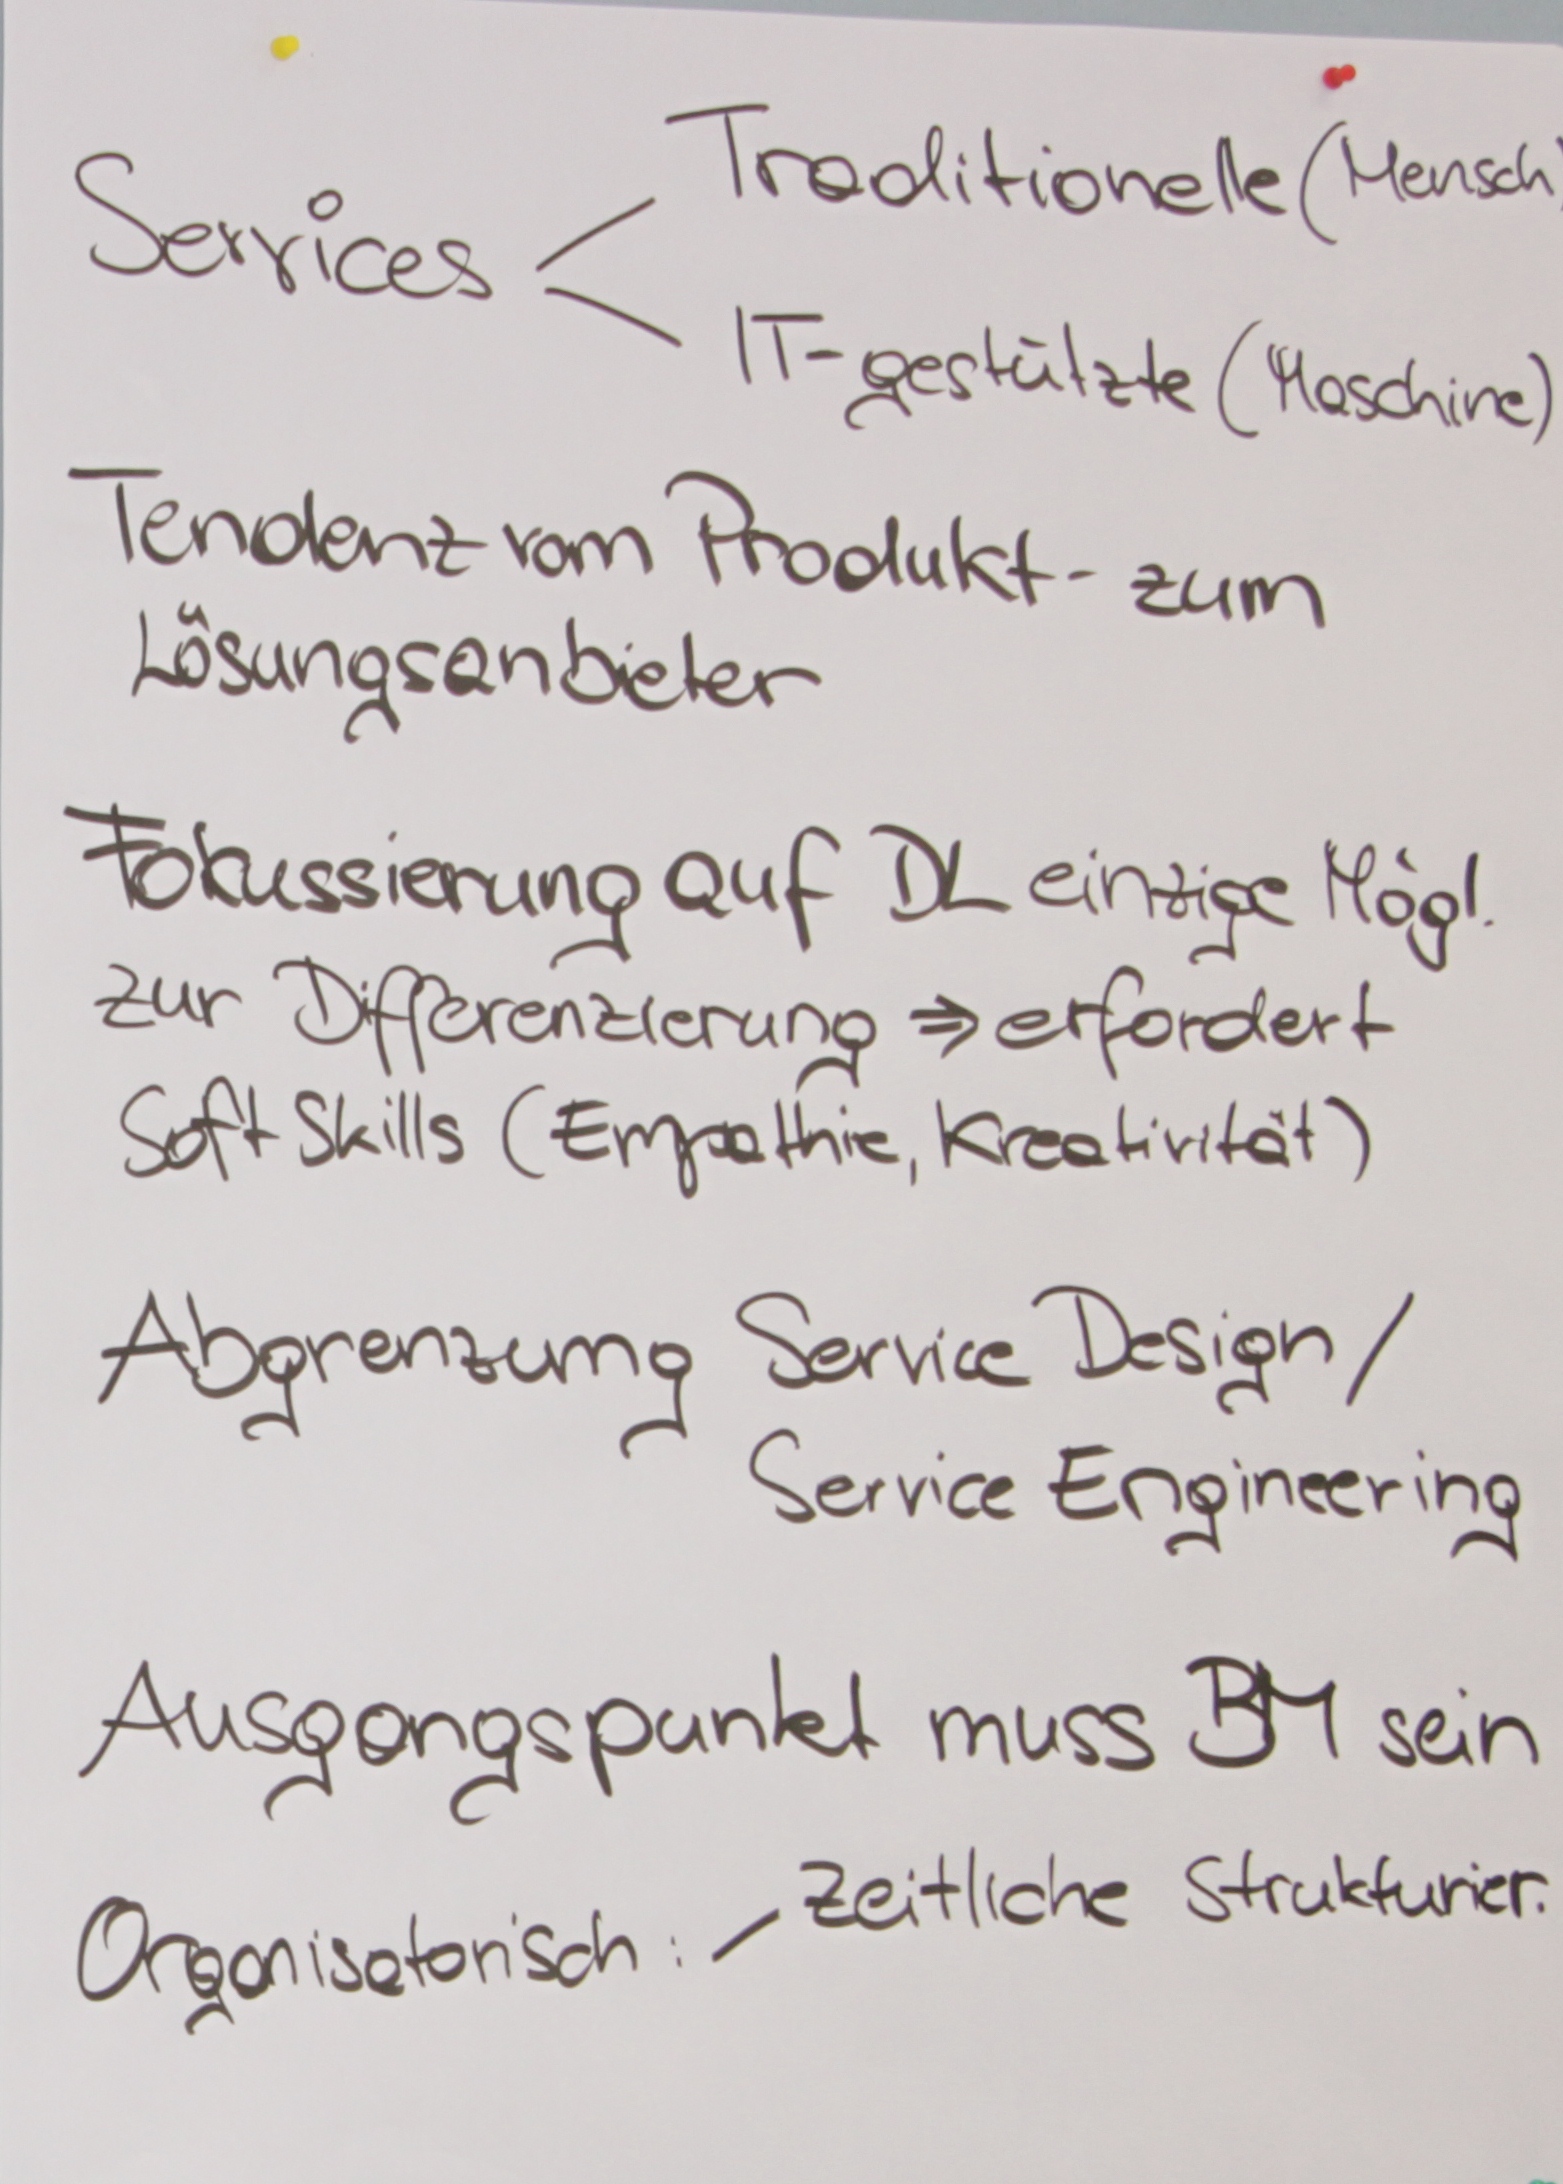 Traditionelle (Mensch)
Services
IT-gestützte (Maschine)
Tendenz vom Produkt- zum
Lösungsanbieter
Fokussierung auf DL einzige Mögl.
zur Differenzierung ⇒ erfordert
Soft Skills (Empathie, Kreativität)
Abgrenzung Service Design /
Service Engineering
Ausgangspunkt muss BM sein
Organisatorisch: - zeitliche Strukturier.